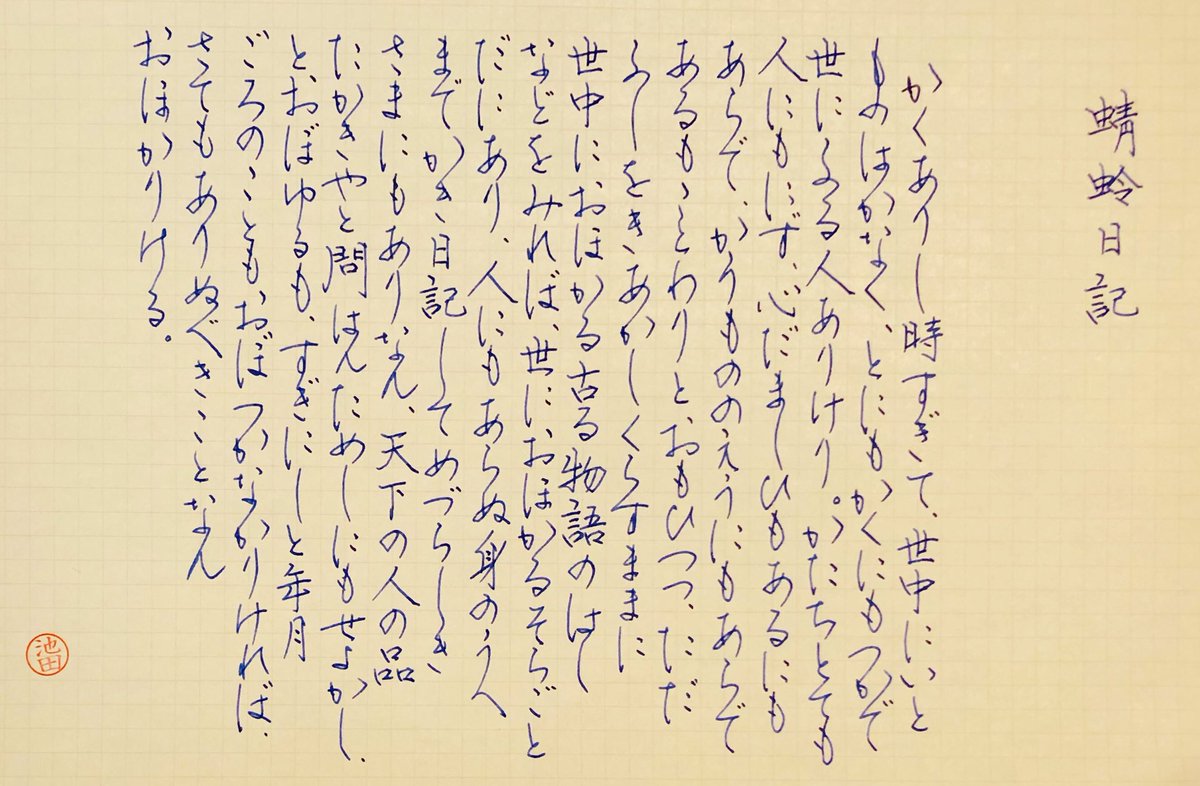 蜻蛉日記
かくありし時すぎて、世中にいと
ものはかなく、とにもかくにもつかで
世にふる人ありけり。かたちとても
人にもにず、心だましひもあるにも
あらで、かりもののえうにもあらで
あるも、ことわりと、おもひつつ、ただ
ふしをきあかしくらすままに
世中におほかる古る物語のはし
などをみれば、世におほかるそらごと
だにあり、人にもあらぬ身のうへ
までかき日記してめづらしき
さまにもありなん、天下の人の品
たかきやと問はんためしにもせよかし、
と、おぼゆるも、すぎにしと年月
ごろのこともおぼつかなかりければ、
さてもありぬべきことなん
おほかりける。
池田